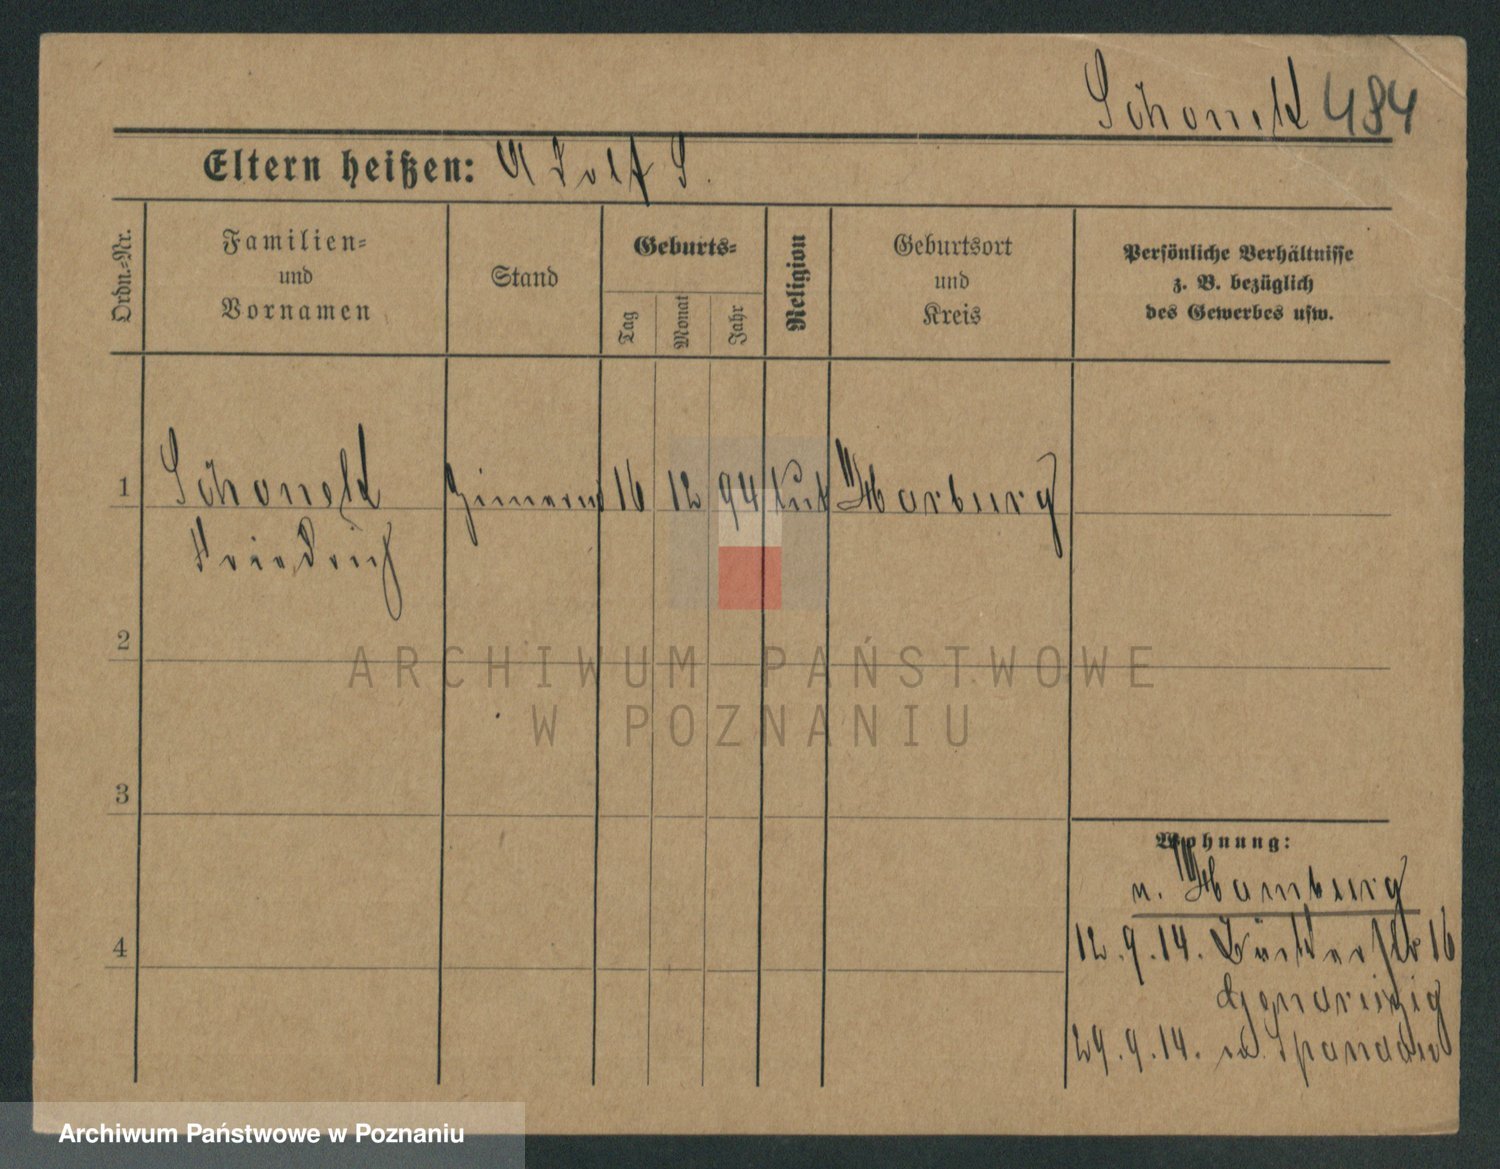 Schonek 484
Eltern heißen: Adolf S.
Ordn.-Nr.
Familien-
und
Vornamen
Stand
Geburts-
Tag
Monat
Jahr
Religion
Geburtsort
und
Kreis
Persönliche Verhältnisse
z. B. bezüglich
des Gewerbes usw.
1
Schonek
16 12 94
Harburg
Friedrich
2
ARCHIWUM PAŃSTWOWE
W POZNANIU
3
Wohnung:
v. Hamburg
4
12.9.14. 16
29.9.14. Spandau
Archiwum Państwowe w Poznaniu